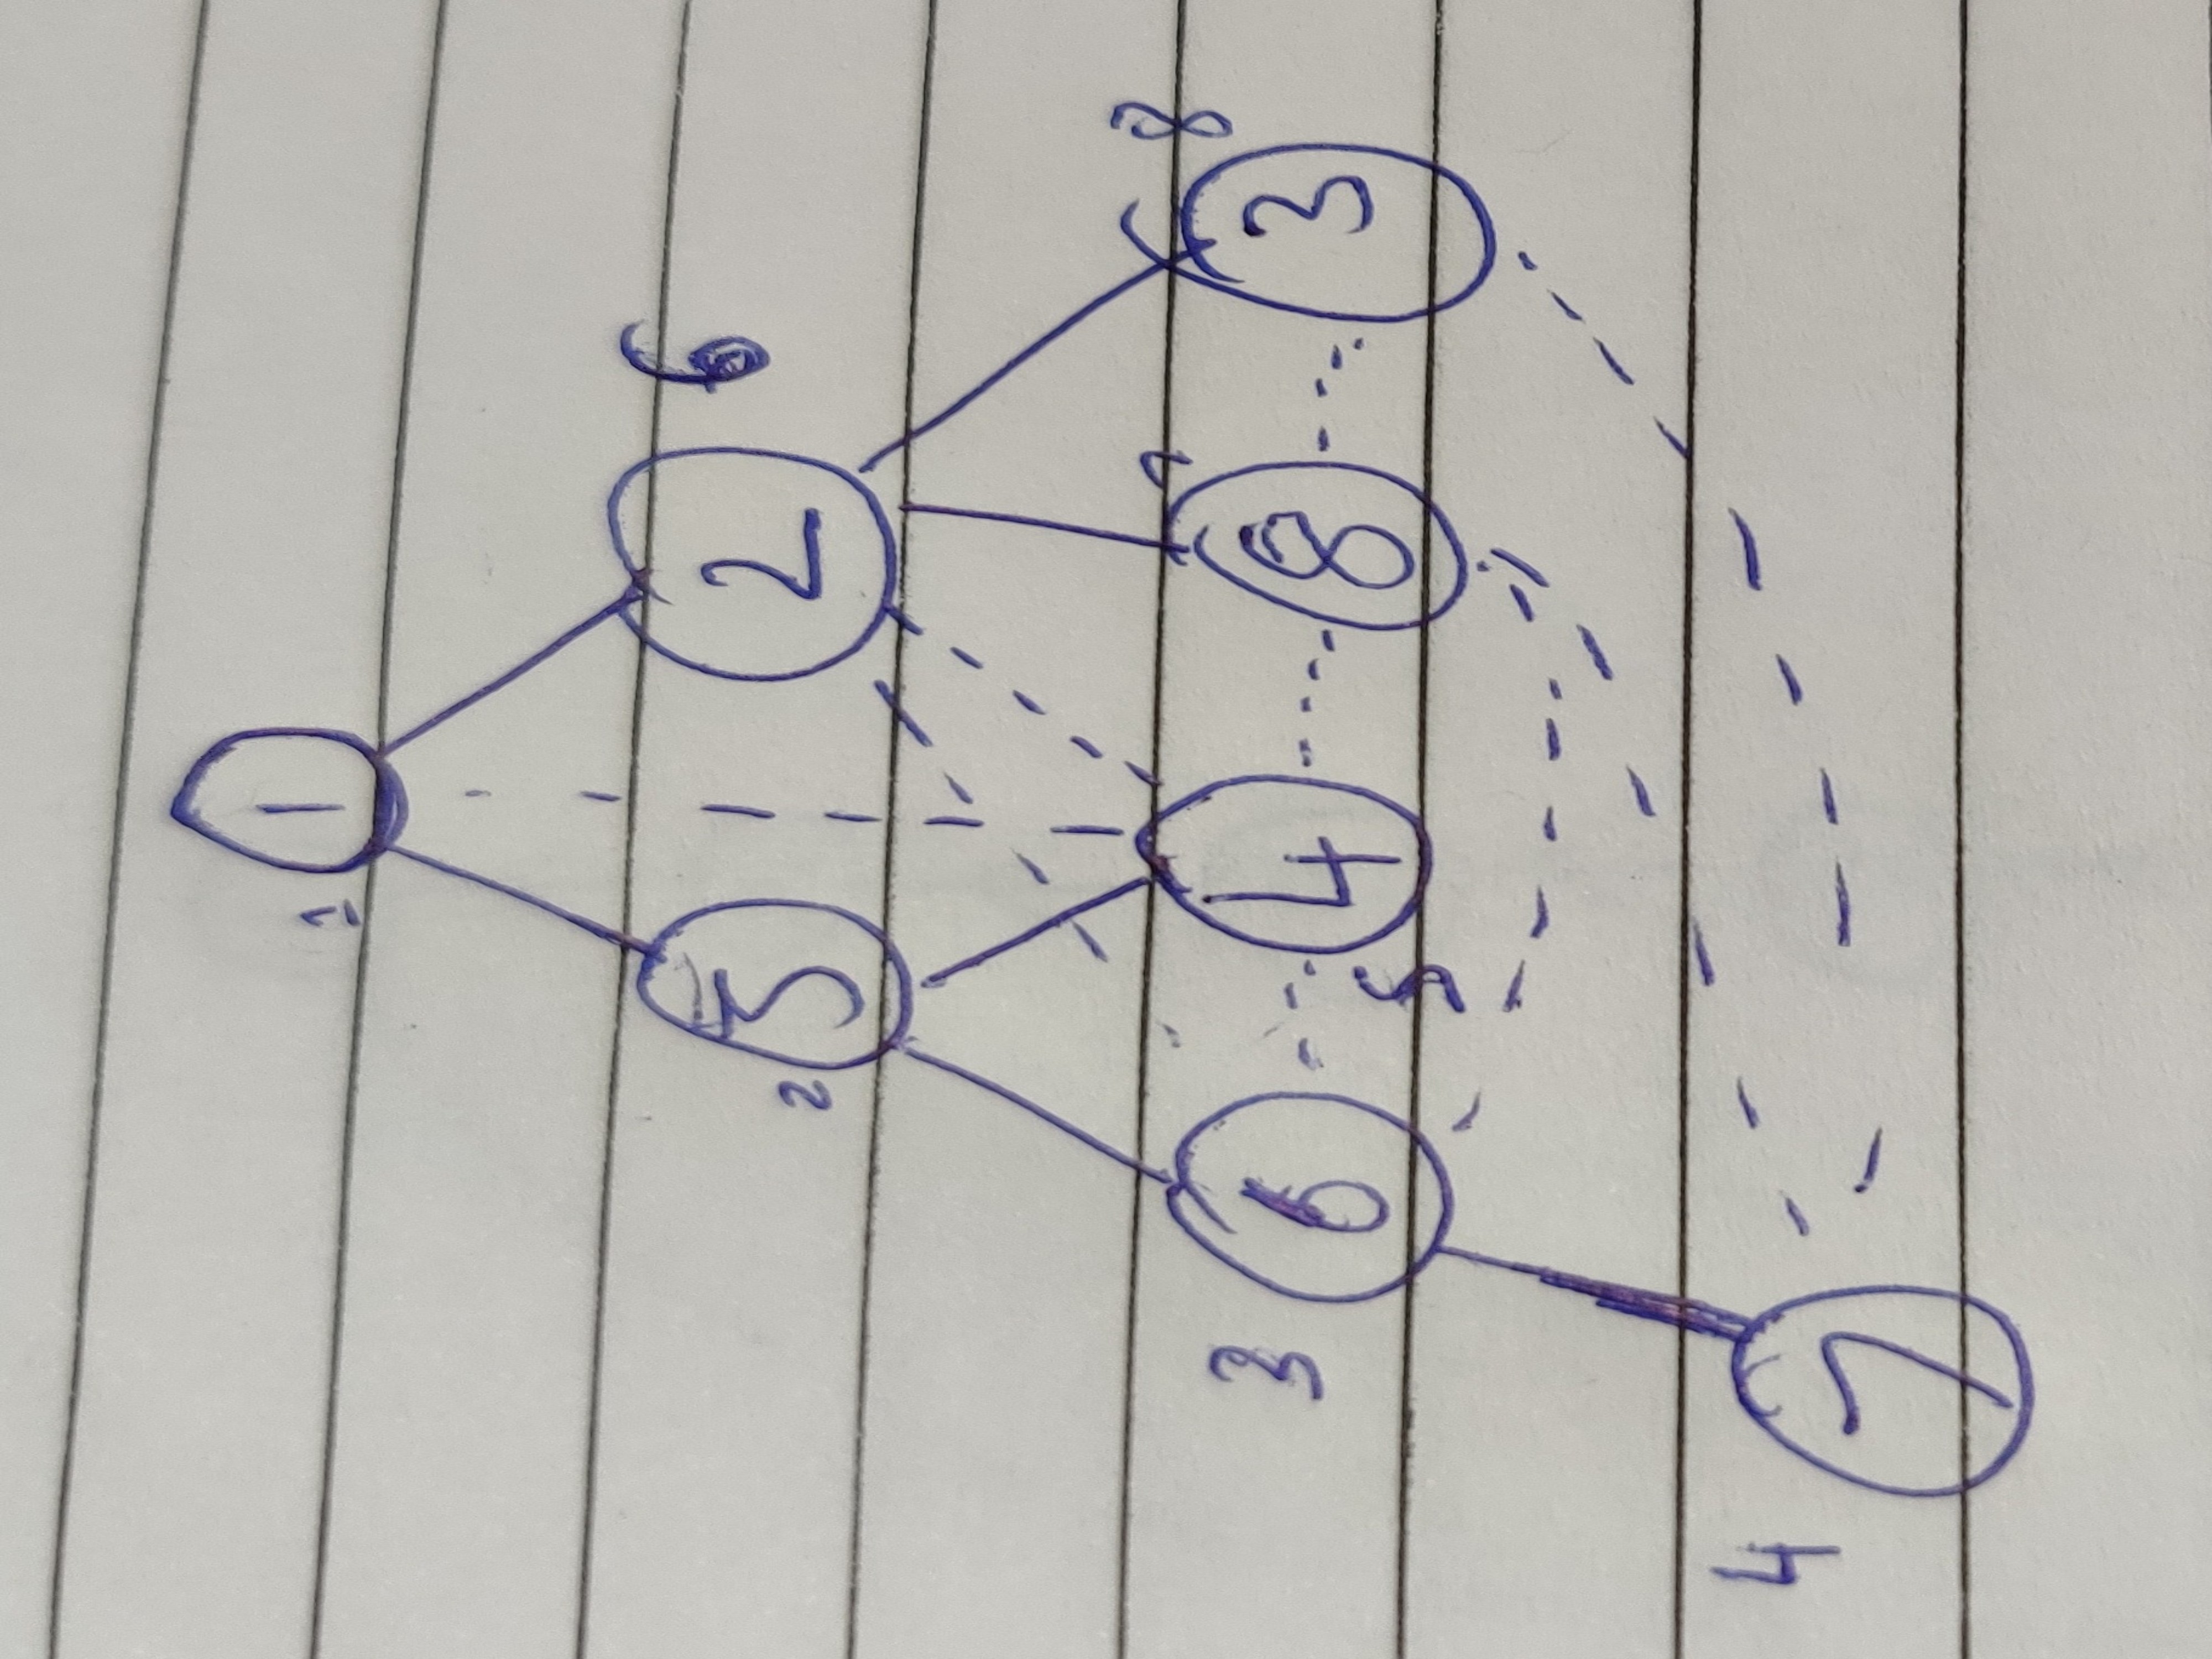 1 1
2 5 2 6
3 6 4 8 7 3 8
5
4 7